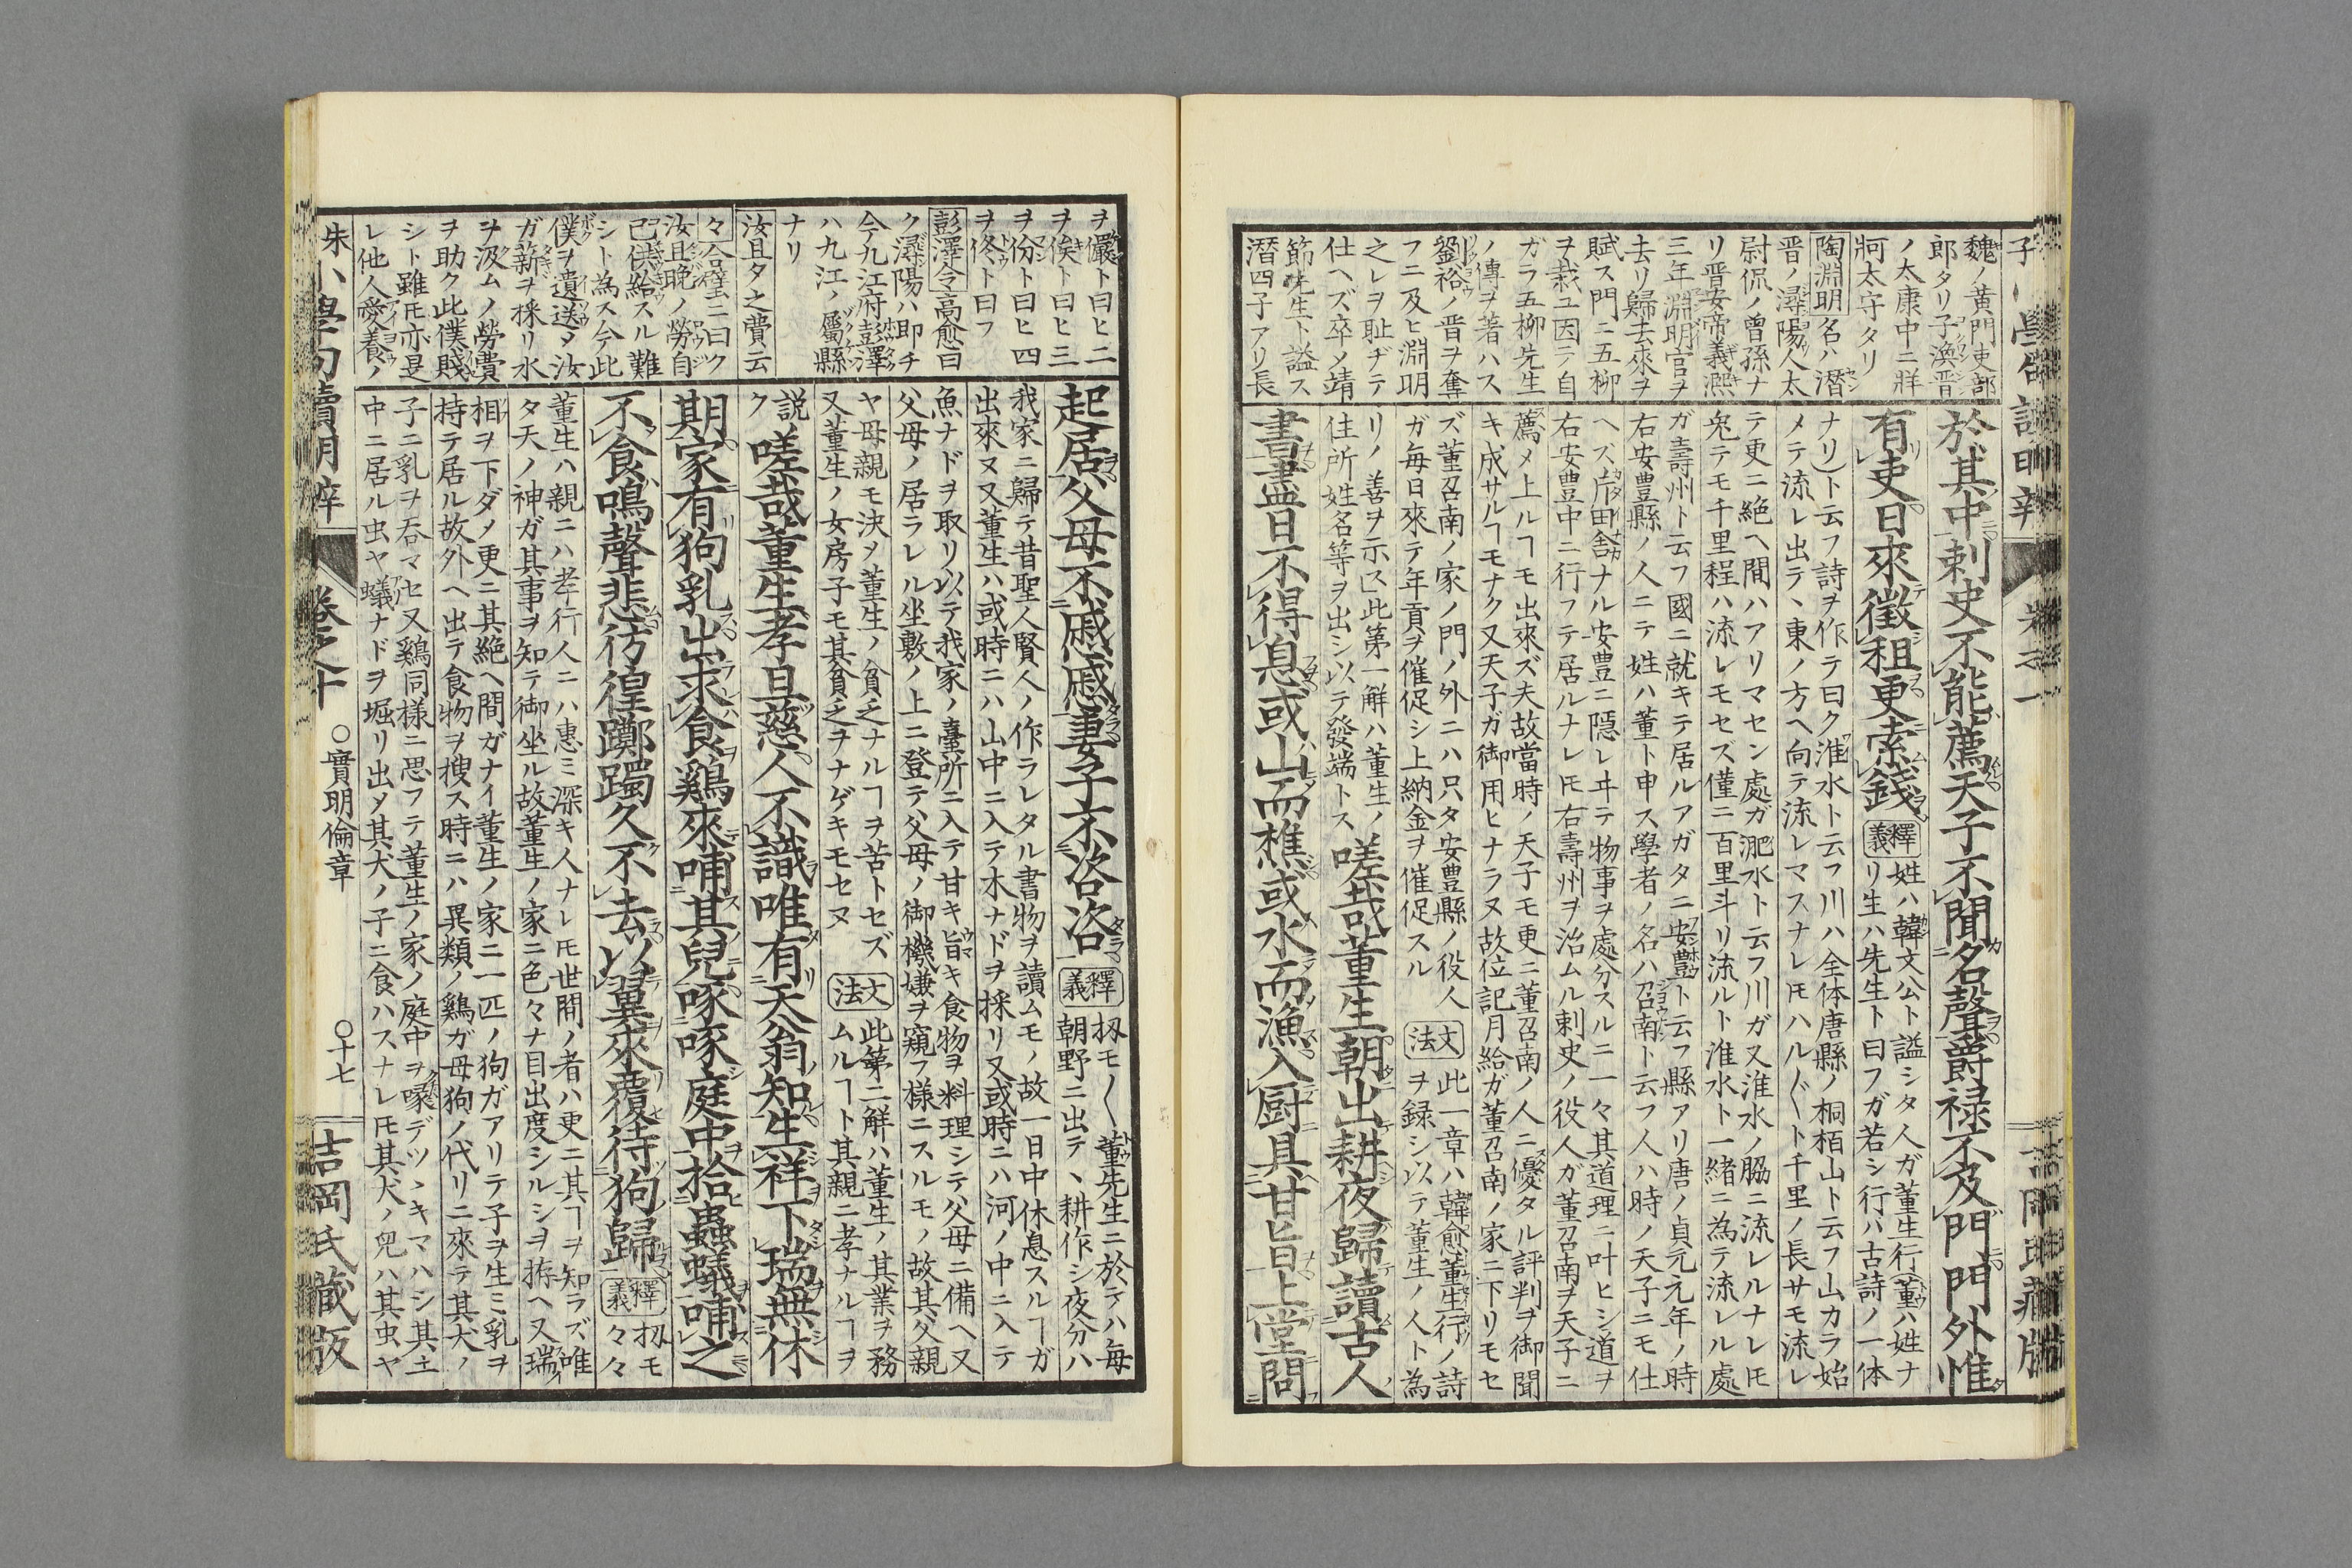 魏ノ黄門吏部
郎タリ子渙晋
ノ太康中ニ牂
牁太守タリ
陶淵明名ハ潛
晋ノ潯陽人太
尉侃ノ曾孫ナ
リ晋安帝義熈
三年淵明官ヲ
去リ歸去來ヲ
賦ス門ニ五柳
ヲ栽ユ因テ自
ガラ五柳先生
ノ傳ヲ著ハス
劉裕ノ晋ヲ奪
フニ及ヒ淵明
之レヲ耻ヂテ
仕ヘズ卒ソ靖
節先生ト謚ス
潛四子アリ長
於其中刺史不能薦天子不聞名聲爵禄不及門門外惟
有吏日來徵租更索錢
釋義
姓ハ韓文公ト謚シタ人ガ董生行董ハ姓ナ
リ生ハ先生ト曰フガ若シ行ハ古詩ノ一体
ナリ)ト云フ詩ヲ作テ曰ク淮水ト云フ川ハ全体唐縣ノ桐栢山ト云フ山カラ始
メテ流レ出テヽ東ノ方ヘ向テ流レマスナレ𪜈ハル〱ト千里ノ長サモ流レ
テ更ニ絶ヘ間ハアリマセン處ガ淝水ト云フ川ガ又淮水ノ脇ニ流レルナレ𪜈
兔テモ千里程ハ流レモセズ僅ニ百里斗リ流ルト淮水ト一緒ニ為テ流レル處
ガ壽州ト云フ國ニ就キテ居ルアガタニ安豊ト云フ縣アリ唐ノ貞元元年ノ時
右安豊縣ノ人ニテ姓ハ董ト申ス學者ノ名ハ召南ト云フ人ハ時ノ天子ニモ仕
ヘズ片田舎ナル安豊ニ隠レヰテ物事ヲ處分スルニ一々其道理ニ叶ヒシ道ヲ
右安豊中ニ行フテ居ルナレ𪜈右壽州ヲ治ムル刺史ノ役人ガ董召南ヲ天子ニ
薦メ上ルヿモ出來ズ夫故當時ノ天子モ更ニ董召南ノ人ニ優タル評判ヲ御聞
キ成サルヿモナク又天子ガ御用ヒナラヌ故位記月給ガ董召南ノ家ニ下リモセ
ズ董召南ノ家ノ門ノ外ニハ只タ安豊縣ノ役人
ガ毎日來テ年貢ヲ催促シ上納金ヲ催促スル
文法
此一章ハ韓愈董生行ノ詩
ヲ録シ以テ董生ノ人ト為
リノ善ヲ示ス此第一解ハ董生ノ
住所姓名等ヲ出シ以テ發端トス
嗟哉董生朝出耕夜歸讀古人
書盡日不得息或山而樵或水而漁入厨具甘旨上堂問
ヲ儼ト曰ヒ二
ヲ俟ト曰ヒ三
ヲ份ト曰ヒ四
ヲ佟ト曰フ
彭澤令高愈曰
ク潯陽ハ即チ
今ノ九江府彭澤
ハ九江ノ屬縣
ナリ
汝旦夕之費云
々合璧ニ曰ク
汝旦晩ノ勞自
己供給スル難
シト為ス今此
僕ヲ遺送メ汝
ガ薪ヲ採リ水
ヲ汲ムノ勞費
ヲ助ク此僕賤
シト雖𪜈亦是
レ他人愛養ノ
起居父母不慼慼妻子不咨咨
釋義
扨モ〱董先生ニ於テハ毎
朝野ニ出テヽ耕作シ夜分ハ
我家ニ歸テ昔聖人賢人ノ作ラレタル書物ヲ讀ムモノ故一日中休息スルヿガ
出來ヌ又董生ハ或時ニハ山中ニ入テ木ナドヲ採リ又或時ニハ河ノ中ニ入テ
魚ナドヲ取リ以テ我家ノ臺所ニ入テ甘キ旨キ食物ヲ料理シテ父母ニ備ヘ又
父母ノ居ラレル坐敷ノ上ニ登テ父母ノ御機嫌ヲ窺フ様ニスルモノ故其父親
ヤ母親モ決メ董生ノ貧乏ナルヿヲ苦トセズ
又董生ノ女房子モ其貧乏ヲナゲキモセヌ
文法
此第二解ハ董生ノ其業ヲ務
ムルヿト其親ニ孝ナルヿヲ
説ク
嗟哉董生孝且慈人不識唯有天翁知生祥下瑞無休
期家有狗乳出求食鷄來哺其兒啄啄庭中拾蟲蟻哺之
不食鳴聲悲彷徨躑躅久不去以翼來覆待狗歸
釋義
扨モ
々々
董生ハ親ニハ孝行人ニハ惠ミ深キ人ナレ𪜈世間ノ者ハ更ニ其ヿヲ知ラズ唯
タ天ノ神ガ其事ヲ知テ御坐ル故董生ノ家ニ色々ナ目出度シルシヲ拵ヘ又瑞
相ヲ下ダメ更ニ其絶ヘ間ガナイ董生ノ家ニ一匹ノ狗ガアリテ子ヲ生ミ乳ヲ
持テ居ル故外ヘ出テ食物ヲ搜ス時ニハ異類ノ鷄ガ母狗ノ代リニ來テ其犬ノ
子ニ乳ヲ呑マセ又鷄同様ニ思フテ董生ノ家ノ庭中ヲ啄デツヽキマハシ其土
中ニ居ル虫ヤ蟻ナドヲ堀リ出メ其犬ノ子ニ食ハスナレ𪜈其犬ノ兒ハ其虫ヤ
朱小學句讀明辨
卷之十
○實明倫章
○十七
吉岡氏藏版